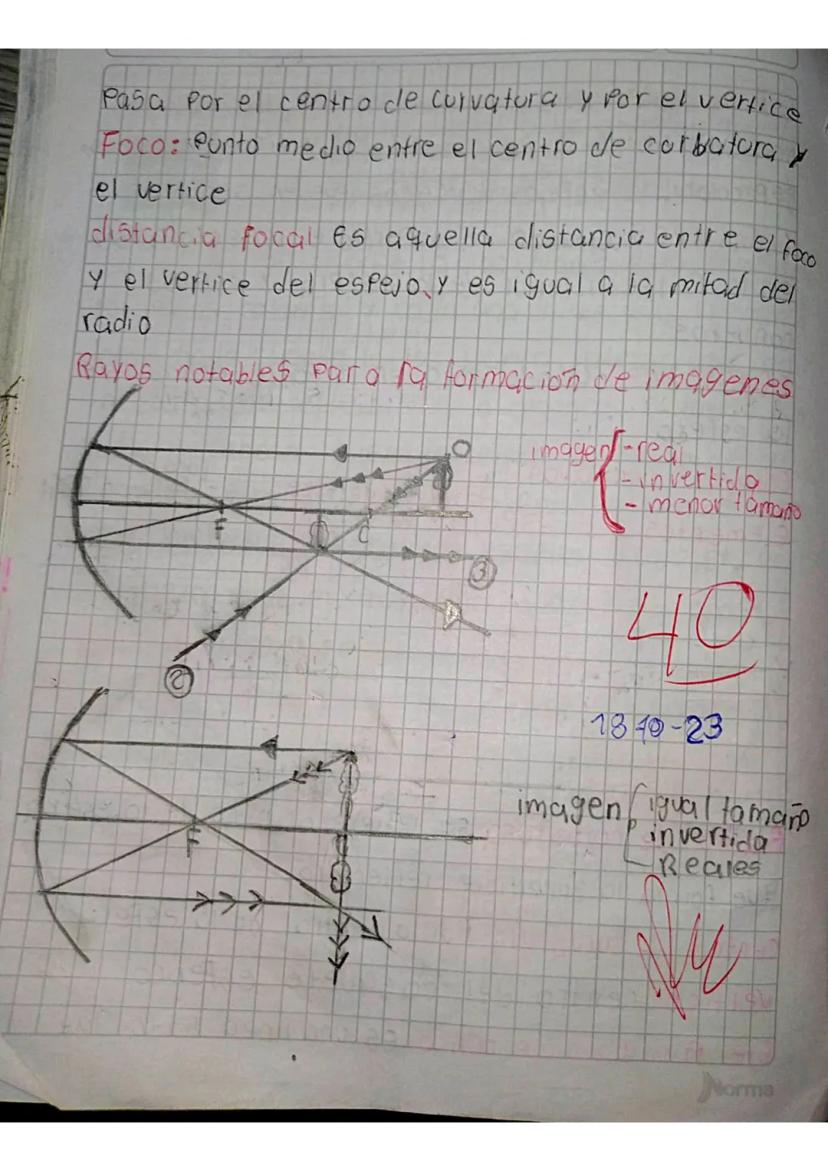 Pasa por el centro de curvatura y por el vertice
Foco: punto medio entre el centro de corbatura y
el vertice
distancia focal es aquella distancia entre el foco
y el vertice del espejo, y es igual a la mitad del
radio
Rayos notables para la formación de imagenes
O
imagen -real
-invertido
- menor tamaño
F
C
3
40
2
18-10-23
imagen igual tamaño
invertida
Reales
F
Norma